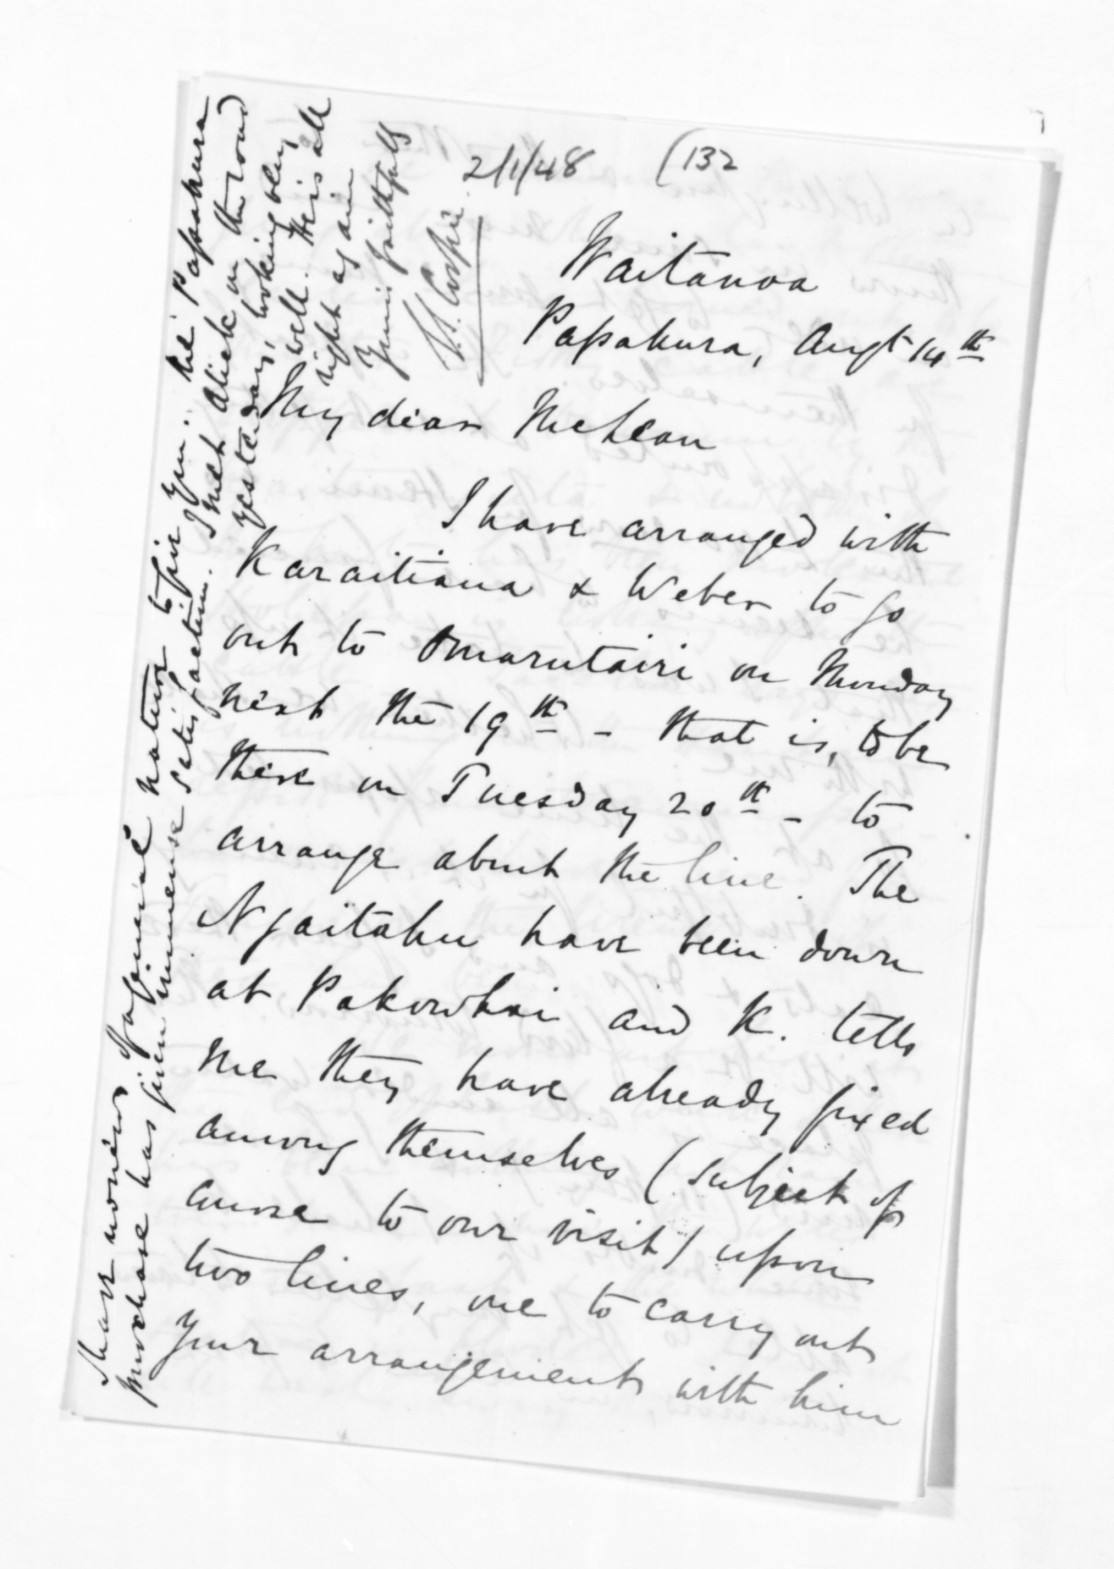 2/1/48 (132
Waitanoa
Papakura, Augt 14th
My dear McLean
I have arranged with
Karaitiana & Weber to go
out to Omarutairi on Monday
next the 19th - that is, to be
there on Tuesday 20th - to
arrange about the line. The
Ngaitahu have been down
at Pakowhai and K. tells
me they have already fixed
among themselves (subject of
course to our visit) upon
two lines, one to carry out
your arrangements with him
I have no news of a general nature to give you. The Papakura
purchase has given immense satisfaction. I met Alick on the road
yesterday, looking very
well. He is all
right again
Yours faithfully
S. Cooper